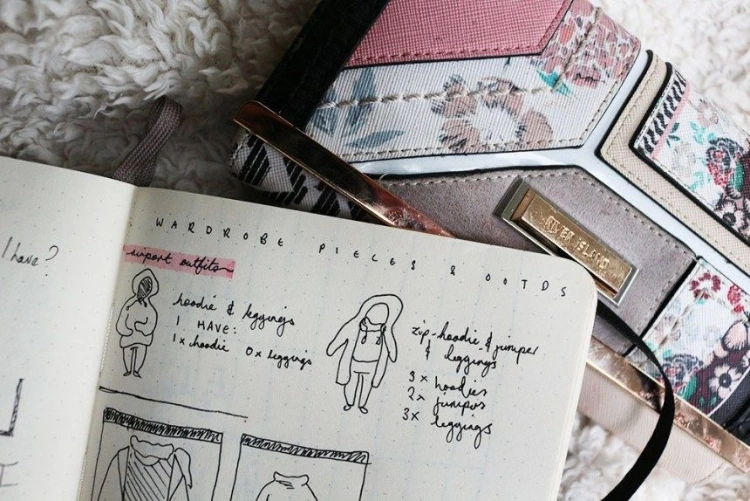 I have?
WARDROBE PIECES & OOTDS
airport outfits
hoodie & leggings
I HAVE:
1x hoodie 0x leggings
zip-hoodie & jumper
& leggings
3x hoodies
2x jumpers
3x leggings
RIVER ISLAND